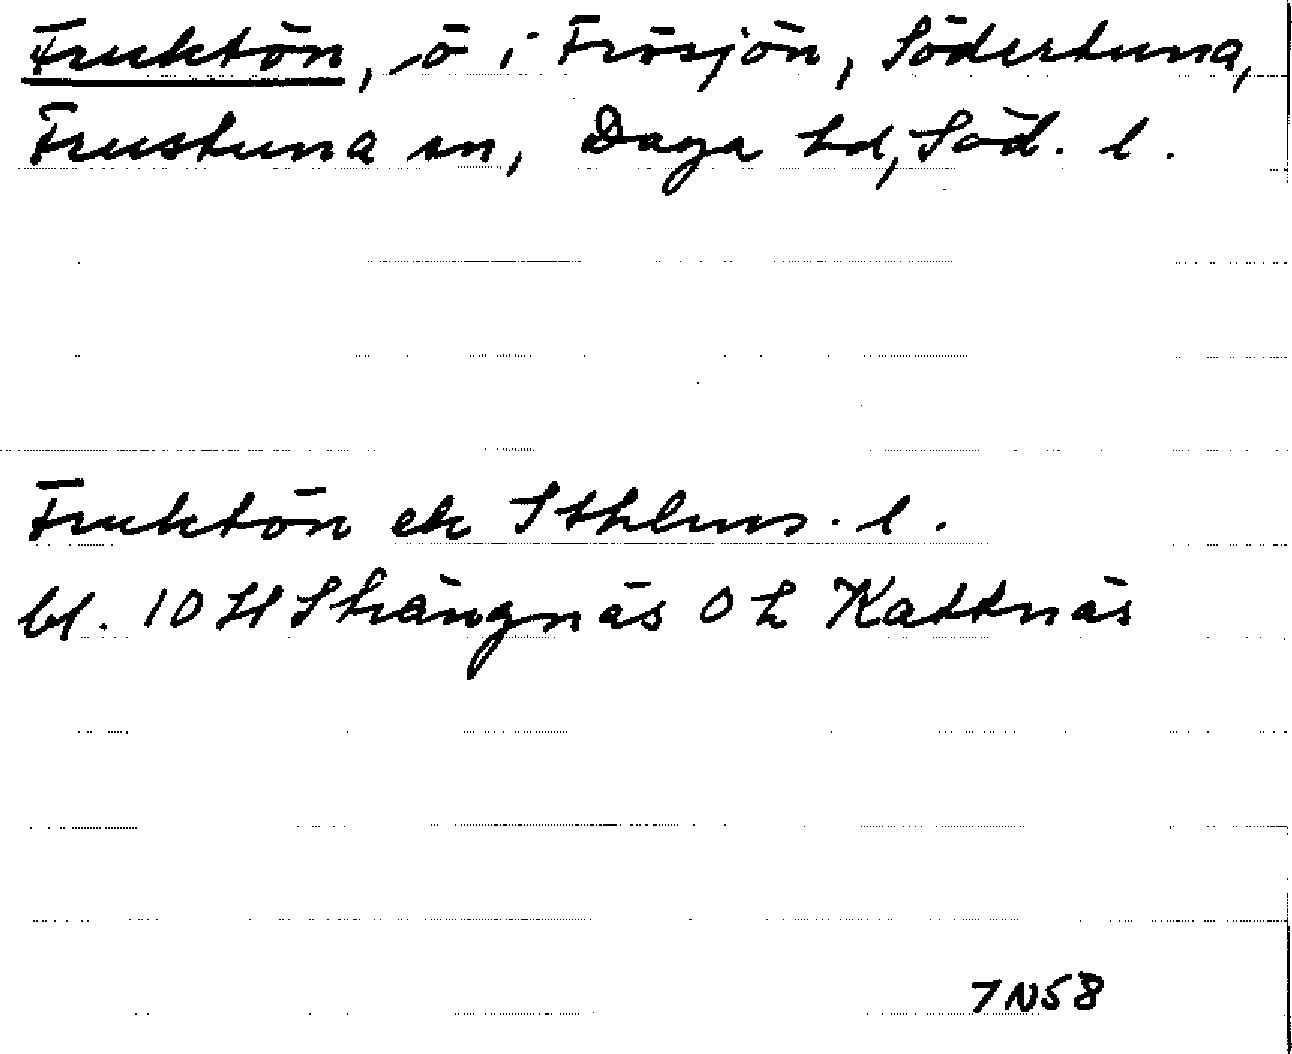 Fruktön, ö i Frösjön, Södertuna,
Frustuna sn, Daga hd, Söd. l.
Fruktön ek Sthlms. l.
bl. 10 H Strängnäs 0 h Kattnäs
7N58